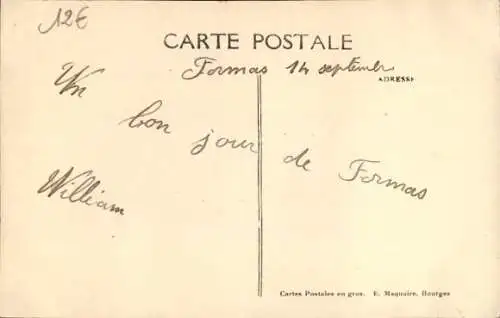 12€
CARTE POSTALE
Formas 14 septembre
ADRESSE
Un bon jour de Formas
William
Cartes Postales en gros. E. Maquaire, Bourges